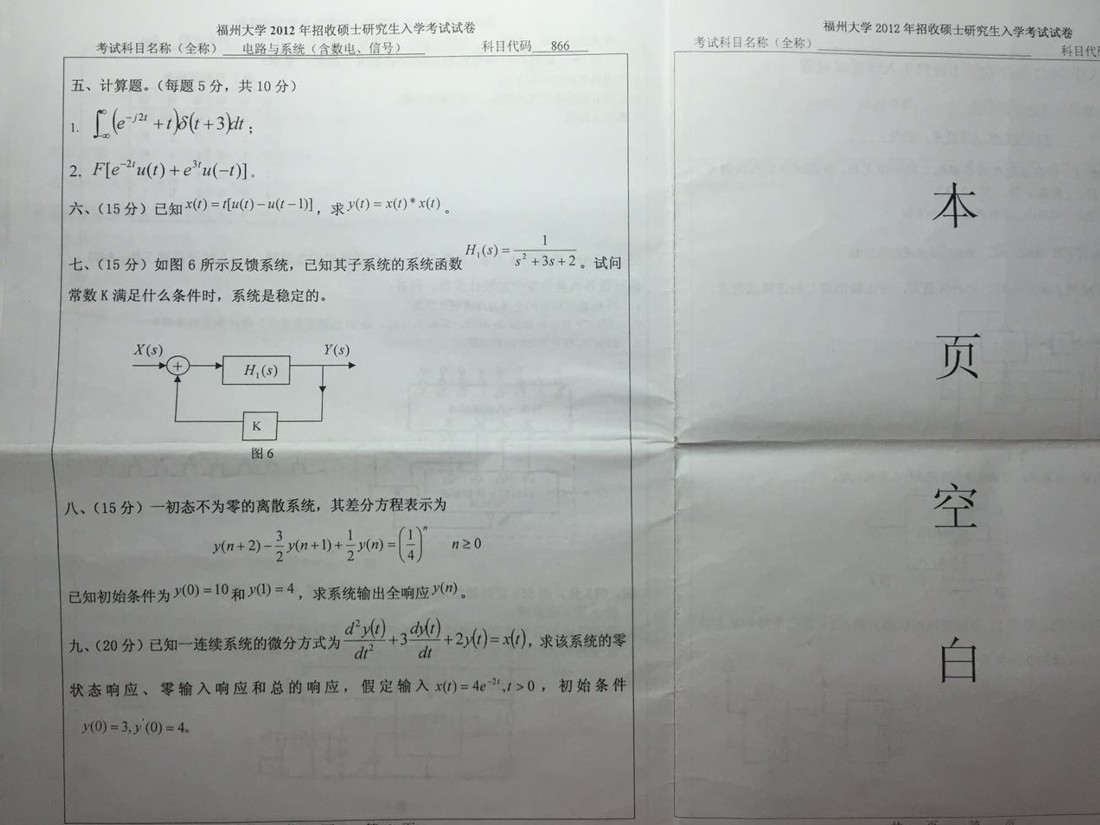 福州大学 2012 年招收硕士研究生入学考试试卷
考试科目名称（全称） 电路与系统（含数电、信号） 科目代码 866
五、计算题。（每题 5 分，共 10 分）
1. ∫_{-∞}^{∞}(e^{-j2t}+t)δ(t+3)dt；
2. F[e^{-2t}u(t)+e^{3t}u(-t)]。
六、（15 分）已知 x(t)=t[u(t)-u(t-1)]，求 y(t)=x(t)*x(t)。
七、（15 分）如图 6 所示反馈系统，已知其子系统的系统函数 H₁(s)=1/(s²+3s+2)。试问
常数 K 满足什么条件时，系统是稳定的。
X(s) + H₁(s) Y(s)
K
图 6
八、（15 分）一初态不为零的离散系统，其差分方程表示为
y(n+2)-3/2 y(n+1)+1/2 y(n)=(1/4)^n n≥0
已知初始条件为 y(0)=10 和 y(1)=4，求系统输出全响应 y(n)。
九、（20 分）已知一连续系统的微分方式为 d²y(t)/dt²+3dy(t)/dt+2y(t)=x(t)，求该系统的零
状态响应、零输入响应和总的响应，假定输入 x(t)=4e^{-2t},t>0，初始条件
y(0)=3,y'(0)=4。
福州大学 2012 年招收硕士研究生入学考试试卷
考试科目名称（全称）
科目代
本
页
空
白